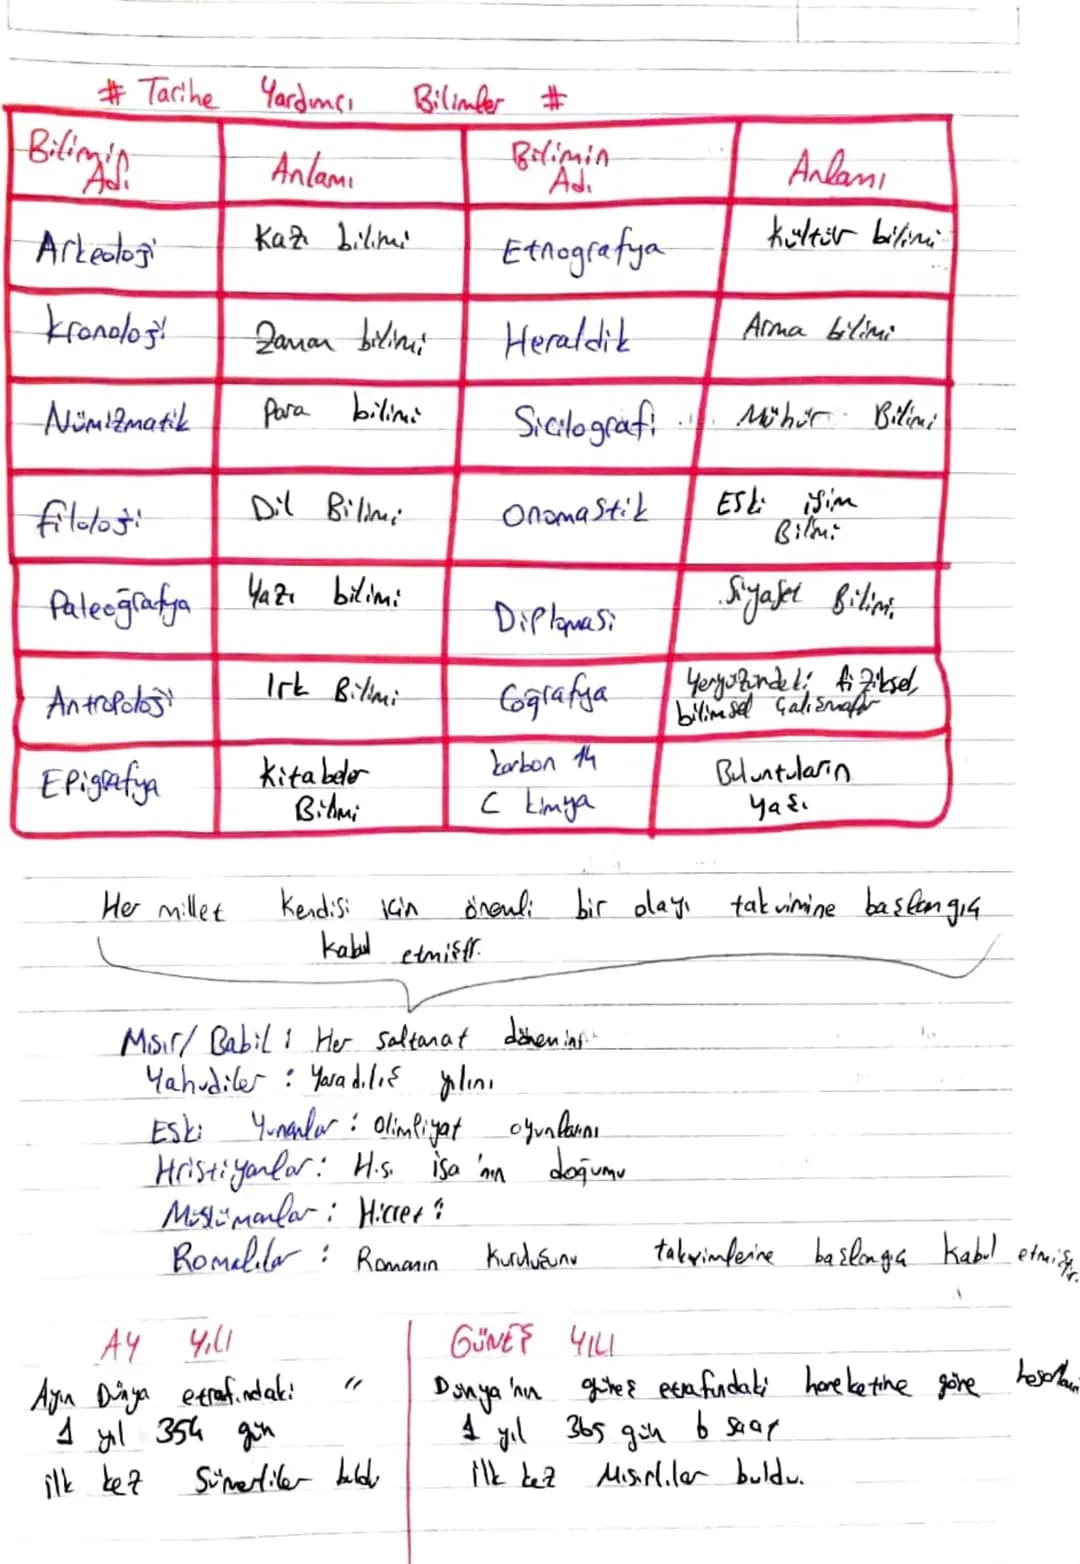 # Tarihe Yardımcı Bilimler #
Bilimin Adı Anlamı Bilimin Adı Anlamı
Arkeoloji Kazı bilimi Etnografya Kültür bilimi
Kronoloji Zaman bilimi Heraldik Arma bilimi
Nümizmatik Para bilimi Sicilografi Mühür Bilimi
Filoloji Dil Bilimi Onomastik Eski isim Bilimi
Paleoğrafya Yazı bilimi Diplomasi Siyaset Bilimi
Antropoloji Irk Bilimi Coğrafya Yeryüzündeki fiziksel, bilimsel çalışmalar
Epigrafya Kitabeler Bilimi karbon 14 C kimya Buluntuların yaşı
Her millet kendisi için önemli bir olayı takvimine başlangıç
kabul etmiştir.
Mısır/ Babil : Her saltanat dönemini
Yahudiler : Yaradılış yılını
Eski Yunanlar : Olimpiyat oyunlarını
Hristiyanlar : H.s. İsa'nın doğumu
Müslümanlar : Hicret
Romalılar : Romanın Kuruluşunu takvimlerine başlangıç kabul etmiştir.
AY YILI
Ayın Dünya etrafındaki "
1 yıl 354 gün
ilk kez Sümerliler buldu
GÜNEŞ YILI
Dünya'nın güneş etrafındaki hareketine göre hesaplanır
1 yıl 365 gün 6 saat
ilk kez Mısırlılar buldu.